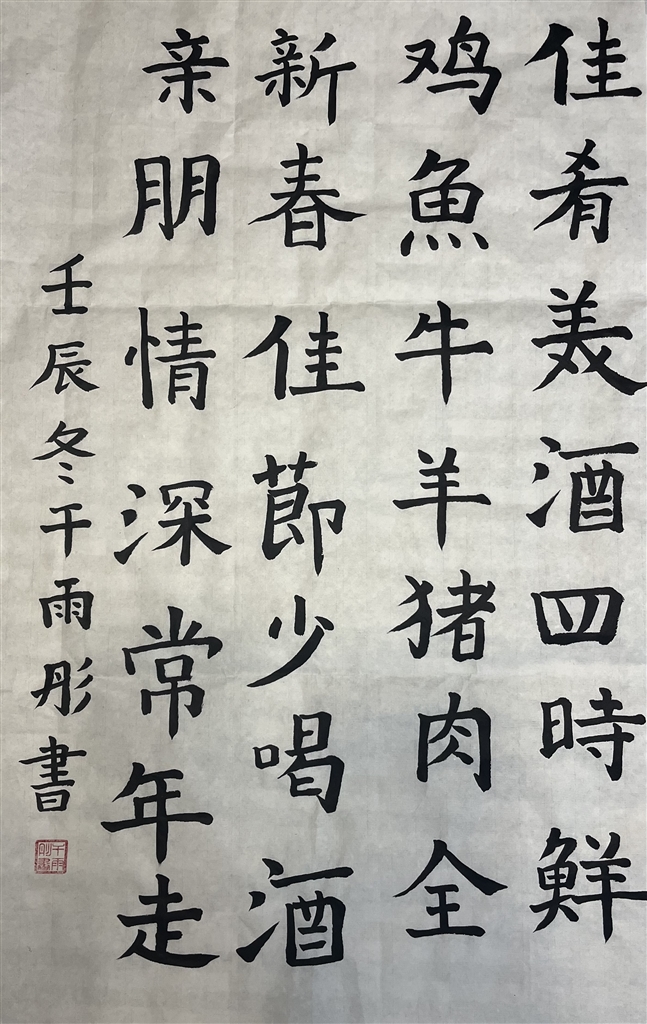 佳肴美酒四時鮮
鸡魚牛羊猪肉全
新春佳節少喝酒
亲朋情深常年走
壬辰冬干雨彤書